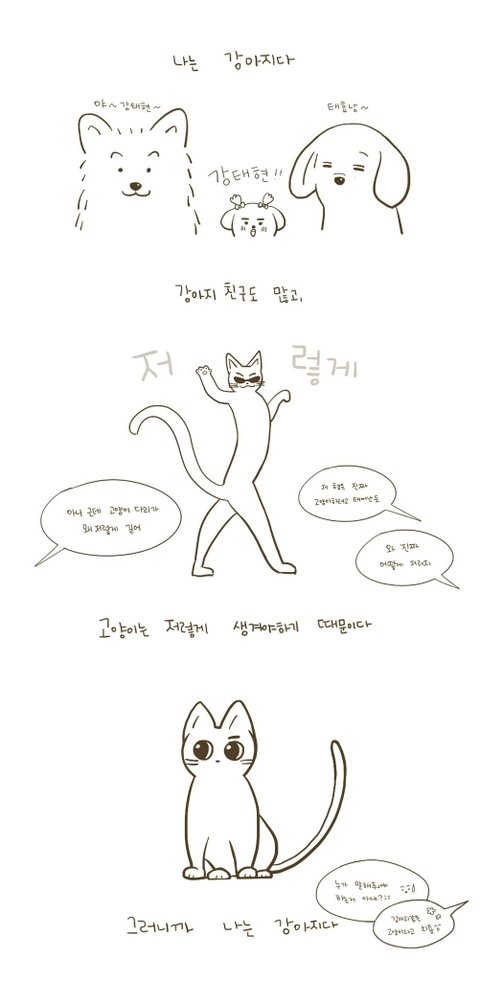 나는 강아지다
야~ 강태현~
태효낭~
강태현!!
강아지 친구도 많고,
저 렇게
아니 근데 고양이 다리가
왜 저렇게 길어
저 형은 진짜
고양이하려고 태어난듯
와 진짜
어떻게 저러지
고양이는 저렇게 생겨야하기 때문이다
누가 말해줘야
하는거 아냐?;;
고양이라고 최종
그러니까 나는 강아지다